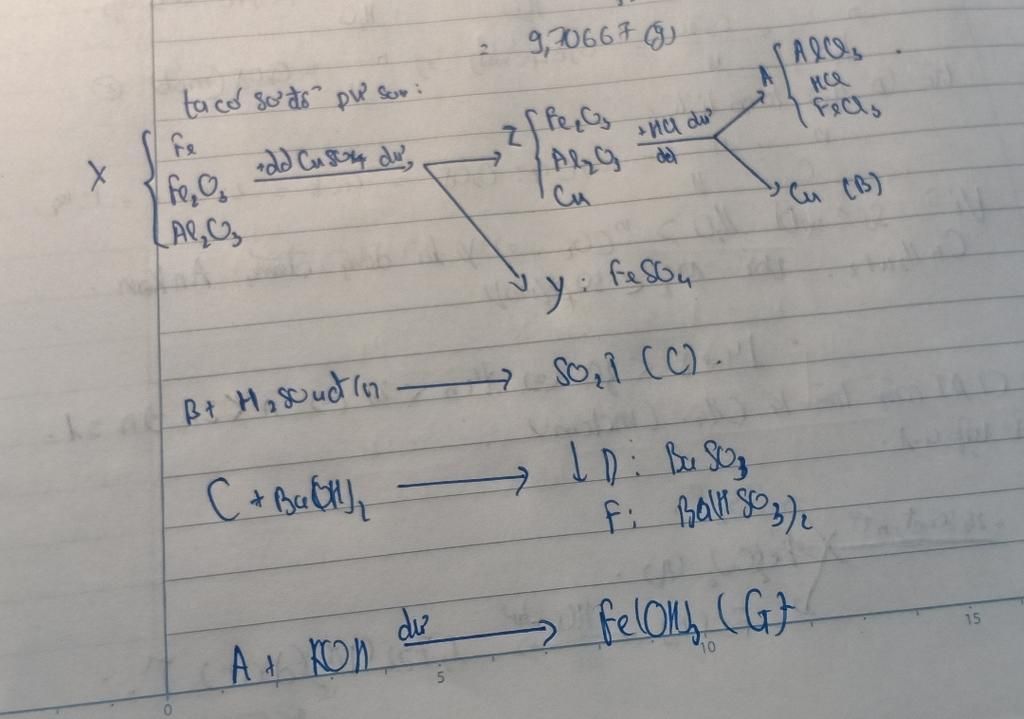 = 9,70667 (g)
ta có sơ đồ pứ sau:
X { Fe
Fe2O3
Al2O3
+dd CuSO4 dư
Z { Fe2O3
Al2O3
Cu
+HCl dư
dd
A { AlCl3
HCl
FeCl3
Cu (B)
Y : FeSO4
B + H2SO4đ(n) → SO2↑ (C).
C + Ba(OH)2 → ↓ D : BaSO3
F : Ba(HSO3)2
A + KOH dư → Fe(OH)3 (G)
0 5 10 15